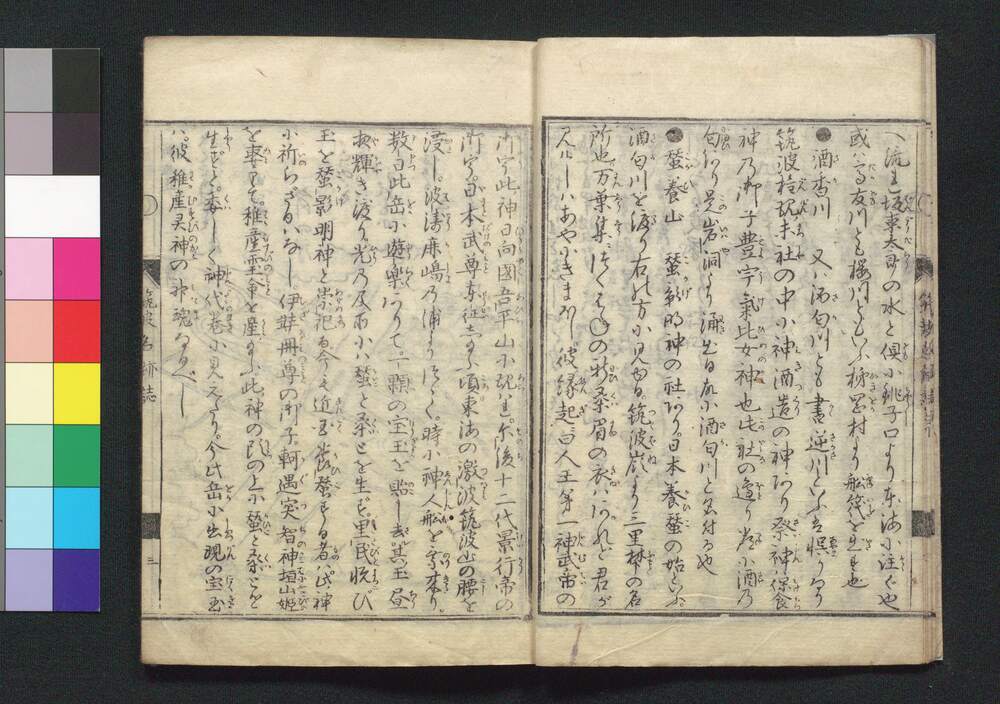 へ流れ坂東太郎の水と倶に銚子口より東海に注ぐ也
或は友川とも桜川ともいふ栃岡村より舩筏を出す也
●酒香川 又ハ酒匂川とも書逆川といふは惧りなり
筑波権現末社の中に神酒造の神あり祭神保食
神乃御子豊宇氣比女神也此社の邊り常に酒乃
匂あり是岩洞より涌出る故に酒匂川と名付る也
●蚕養山 蚕影明神の社あり日本養蚕の始といふ
酒匂川を渡り右の方に見ゆる筑波嶺より三里林の名
所也万葉集につくはねの新桑眉の衣はあれど君が
みけしゝあやにきまほし彼縁起曰人王第一神武帝の
御宇此神日向國吾平山に現れ玉ふ後十二代景行帝の
御宇日本武尊東征志たまふ頃東海の激波筑波山の腰を
浸し波涛鹿嶋乃浦よりつゞく時に神人舩に乗来り
教曰此岳に遊樂ありて一顆の宝玉を貽し去其玉昼
夜輝き渡り光乃及所には蚕と桑とを生ず里民悦び
玉を蚕影明神と崇祀る今も近玉養蚕する者ハ此神
に祈らざるハなし伊弉冊尊の御子軻遇突智神埴山姫
を娶りて稚産霊命を産玉ふ此神の頂の上に蚕と桑とを
生ずと委しく神代巻に見えたり今此岳に出現の宝玉
ハ彼稚産灵神の神魂なるべし
筑波名跡誌
三